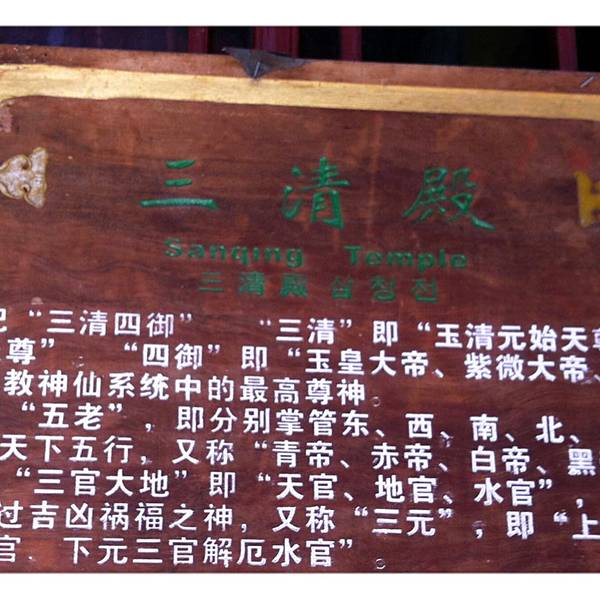 三清殿
Sanqing Temple
三清殿 삼청전
“三清四御” “三清”即“玉清元始天
尊” “四御”即“玉皇大帝、紫微大帝、
教神仙系统中的最高尊神。
“五老”,即分别掌管东、西、南、北、
天下五行,又称“青帝、赤帝、白帝、黑
“三官大地”即“天官、地官、水官”,
过吉凶祸福之神,又称“三元”,即“上
官 下元三官解厄水官”。